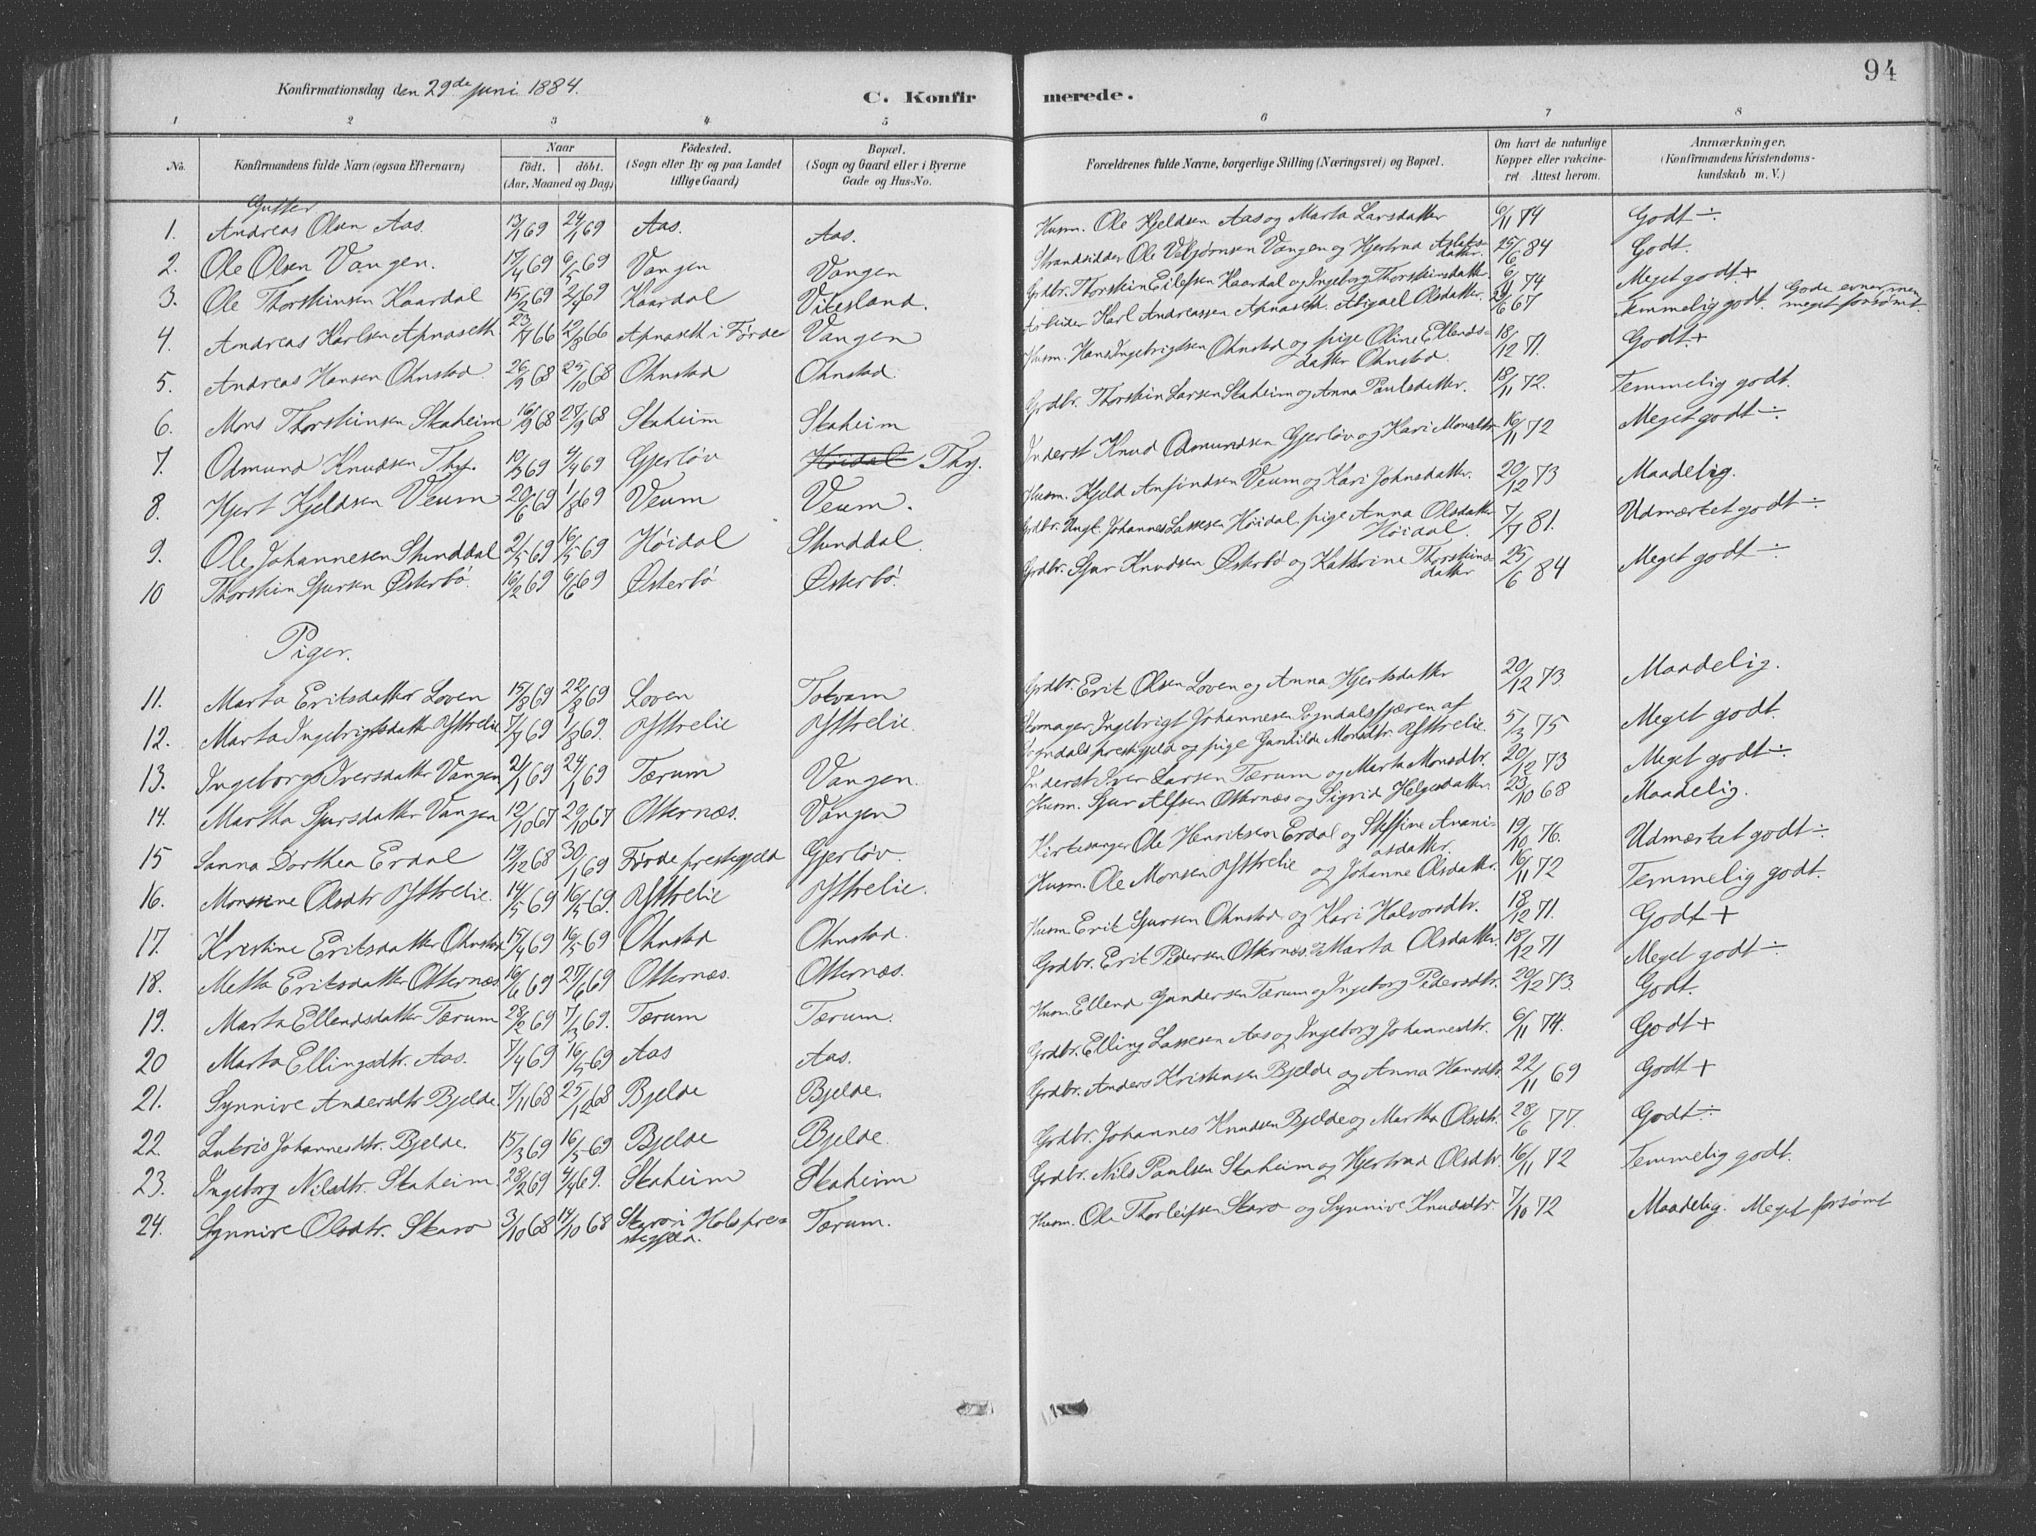 94
Konfirmationsdag den 29de Juni 1884.
C. Konfirmerede.
1 2 3 4 5 6 7 8
No. Konfirmandens fulde Navn (ogsaa Efternavn) Naar födt. döbt. (Aar, Maaned og Dag) Födested. (Sogn eller By og paa Landet tillige Gaard) Bopæl. (Sogn og Gaard eller i Byerne Gade og Hus-No. Forældrenes fulde Navne, borgerlige Stilling (Næringsvei) og Bopæl. Om havt de naturlige Kopper eller vakcineret. Attest herom. Anmærkninger. (Konfirmandens Kristendomskundskab m. V.)
Gutter
1. Andreas Olsen Aas. 13/1 69 24/1 69 Aas. Aas. Husm. Ole Kjeldsen Aas og Marta Larsdatter 6/11 74 Godt ÷
2. Ole Olsen Vangen. 17/4 69 6/5 69 Vangen Vangen Strandsidder Ole Vebjørnsen Vangen og Hjertrud Aslaksdatter. 25/6 84 Godt.
3. Ole Thorstinsen Kaardal 15/2 69 69 Kaardal Vitesland. Grdbr. Thorstin Eilefsen Kaardal og Ingeborg Thorstinsdatter. 6/11 74 Meget godt +
4. Andreas Karlsen Apnaseth 23/7 66 12/8 66 Apnaseth i Førde Vangen Arbeider Karl Andreassen Apnaseth. Abigael Olsdatter. 67 Temmelig godt. Gode evner men meget forsømt.
5. Andreas Hansen Ohnstad 26/9 68 25/10 68 Ohnstad Ohnstad. Husm. Hans Ingebrigtsen Ohnstad og pige Oline Ellendsdatter Ohnstad. 18/12 71. Godt. +
6. Mons Thorstinsen Skaheim 16/9 68 27/9 68 Skaheim Skaheim Grdbr. Thorstin Larsen Skaheim og Anna Paulsdatter. 18/11 72. Temmelig godt.
7. Odmund Knudsen Thy. 10/3 69 4/4 69 Gjerløv Høidal Thy. Inderst Knud Odmundsen Gjerløv og Kari Monsdtr. 16/11 72 Meget godt ÷
8. Hjert Kjeldsen Veum 20/6 69 1/8 69 Veum Veum. Husm. Kjeld Anfindsen Veum og Kari Johnsdatter. 20/12 73 Maadelig.
9. Ole Johannesen Stunddal 2/5 69 16/5 69 Høidal Stunddal. Grdbr. Ungk. Johannes Lassesen Høidal, pige Anna Olsdatter Høidal. 7/7 81. Udmærket godt ÷
10 Thorstin Sjursen Østerbø. 16/2 69 6/6 69 Østerbø Østerbø. Grdbr. Sjur Knudsen Østerbø og Kathrine Thorstinsdatter 25/6 84 Meget godt ÷
Piger.
11. Marta Eriksdatter Loven 15/8 69 22/8 69 Loven Tokvam Grdbr. Erik Olsen Loven og Anna Hjertsdatter 20/12 73. Maadelig.
12. Marta Ingebrigtsdatter Yttrelie 7/7 69 1/8 69. Yttrelie Yttrelie. Skomager Ingebrigt Johannesen Sogndalsfjæren af Sogndals prestegjeld og pige Gunhilde Monsdtr. Yttrelie. 5/3 75 Meget godt.
13. Ingeborg Iversdatter Vangen 2/1 69 24/1 69 Tærum Vangen. Inderst Iver Larsen Tærum og Marta Monsdtr. 20/12 73 Meget godt ÷
14. Martha Sjursdatter Vangen 12/10 67 20/10 67 Otternæs. Vangen Husm. Sjur Alfsen Otternæs og Sigrid Helgesdatter. 23/10 68 Maadelig.
15 Sanna Dorthea Erdal 19/12 68 30/1 69 Førde prestegjeld Gjerløv. Kirkesanger Ole Henriksen Erdal og Steffine Ananiasdatter. 19/10 76. Udmærket godt ÷
16. Monssine Olsdtr Yttrelie. 14/5 69 16/5 69. Yttrelie Yttrelie. Husm. Ole Monsen Yttrelie og Johanne Olsdatter. 16/11 72 Temmelig godt.
17. Kristine Eriksdatter Ohnstad 15/4 69 16/5 69. Ohnstad Ohnstad. Husm. Erik Sjursen Ohnstad og Kari Halvorsdtr. 18/12 71. Godt +
18. Metta Eriksdatter Otternæs. 16/6 69 27/6 69 Otternæs. Otternæs. Grdbr. Erik Pedersen Otternæs og Marta Olsdatter. 18/12 71 Meget godt ÷
19. Marta Ellendsdatter Tærum 28/2 69 7/3 69. Tærum Tærum. Husm. Ellend Gundersen Tærum og Ingeborg Pedersdtr. 20/12 73. Godt.
20 Marta Ellingsdtr. Aas. 7/4 69 16/5 69 Aas Aas. Grdbr. Elling Lassesen Aas og Ingeborg Johannesdtr. 6/11 74. Godt +
21. Synnive Andersdtr Bjelde. 7/11 68 25/12 68 Bjelde Bjelde. Grdbr. Anders Kristensen Bjelde og Anna Hansdtr. 22/11 69 Godt +
22. Lukris Johannesdtr. Bjelde. 15/3 69 16/5 69 Bjelde Bjelde. Grdbr. Johannes Knudsen Bjelde og Martha Olsdtr. 28/6 77. Godt ÷
23. Ingeborg Nilsdtr. Skaheim. 28/2 69 4/4 69. Skaheim Skaheim Grdbr. Nils Paulsen Skaheim og Hjertrud Olsdtr. 16/11 72 Temmelig godt.
24. Synnive Olsdtr. Skaro 3/10 68 14/10 68 Skaro i Hols prestegjeld. Tærum. Husm. Ole Thorleifsen Skaro og Synnive Knudsdtr. 7/10 72 Maadelig. Meget forsømt